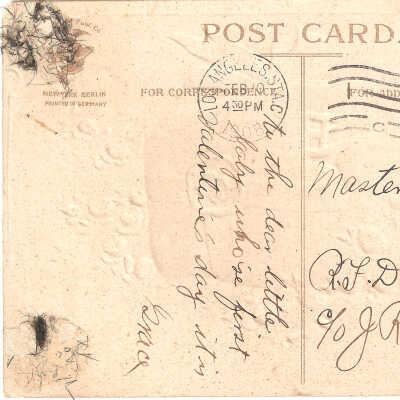 POST CARD.
NEW YORK BERLIN
PRINTED IN GERMANY
FOR CORRESPONDENCE
FOR ADD
LOS ANGELES, STA. C
FEB 10
4 30 PM
1908
C
to the dear little
baby whose first
Valentine's day it is
Grace
Master
R.F.D
c/o J R